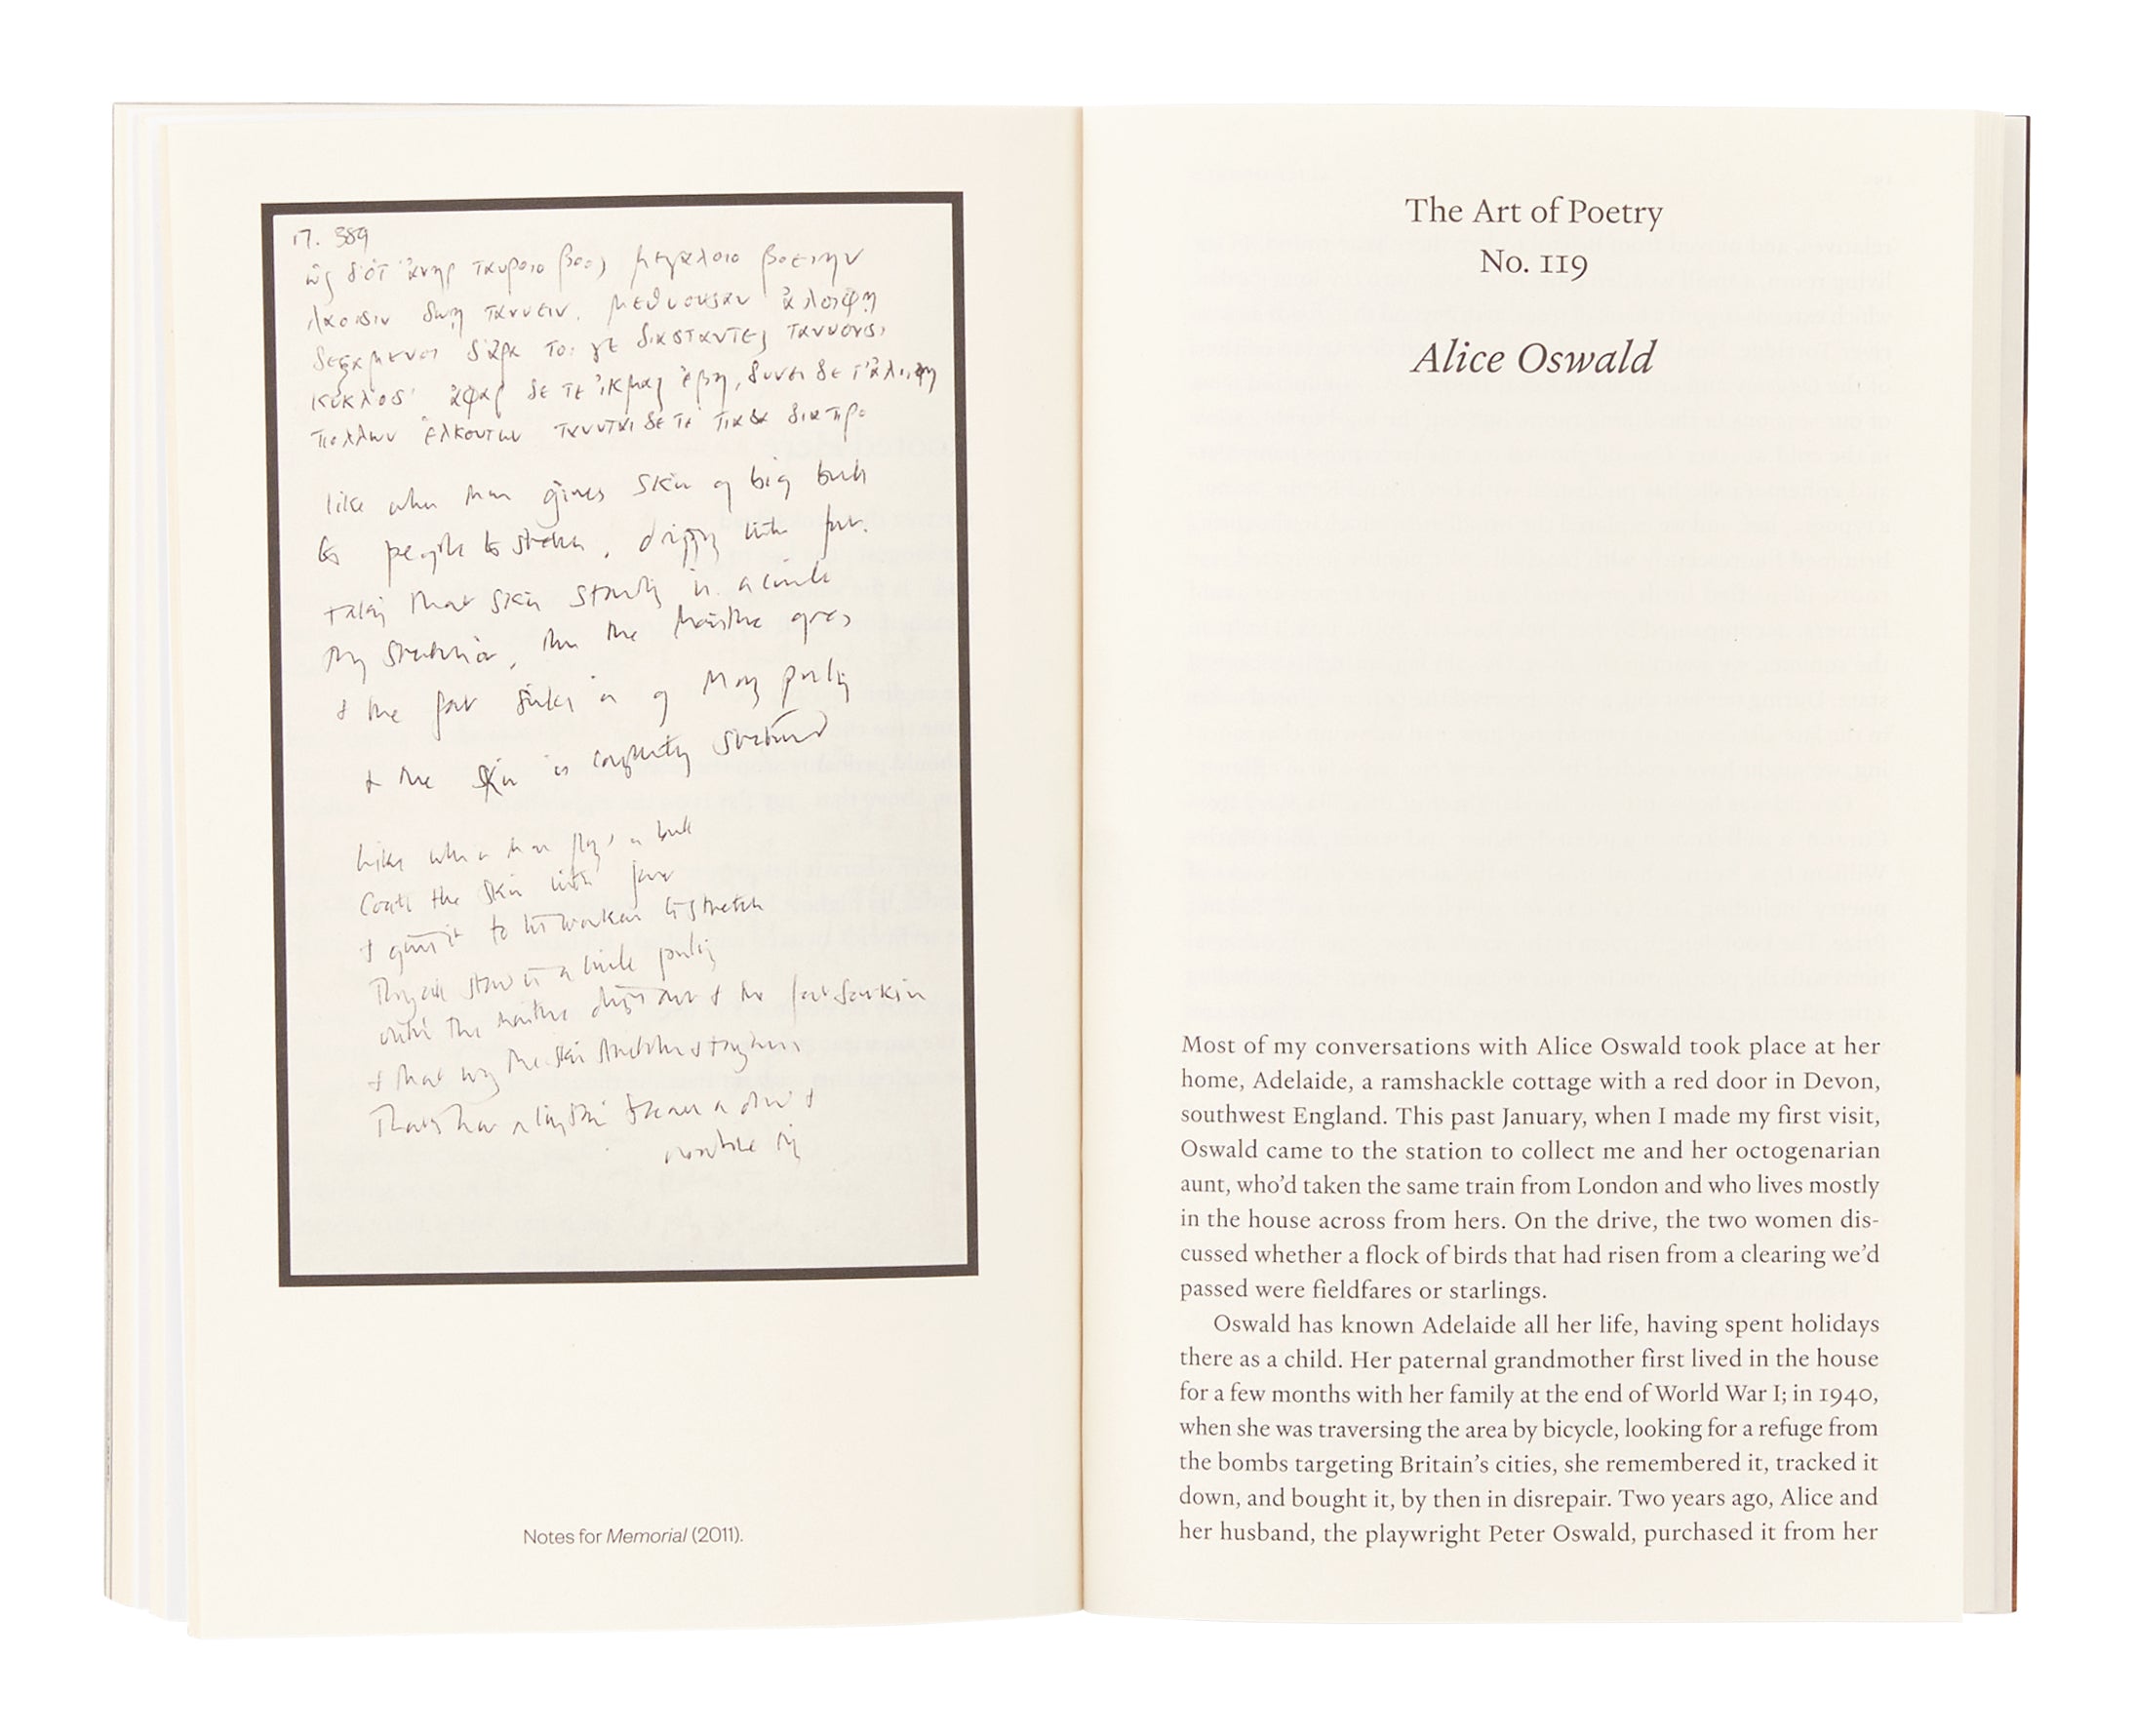 17. 389
ὡς δ'ὁτ' ἀνηρ ταυροιο βοος μεγαλοιο βοειην
λαοισιν δωῃ τανυειν. μεθυουσαν ἀλοιφῃ
δεξαμενοι δ'ἀρα τοι γε διασταντες τανυουσι
κυκλοσ' ἀφαρ δε τε ἰκμας ἐβη, δυνει δε τ'ἀλοιφη
πολλων ἑλκοντων τανυται δε τε πασα διαπρο
like when man gives skin of big bull
to people to stretch, dripping with fat.
taking that skin standing in a circle
they stretch it, then the moisture goes
& the fat sinks in of many pulling
& the skin is completely stretched
Like when a man flays a bull
Coats the skin with fat
& gives it to his workers to stretch
They all stand in a circle pulling
until the moisture drips out & the fat soaks in
& that way the skin stretches
Notes for Memorial (2011).
The Art of Poetry
No. 119
Alice Oswald
Most of my conversations with Alice Oswald took place at her
home, Adelaide, a ramshackle cottage with a red door in Devon,
southwest England. This past January, when I made my first visit,
Oswald came to the station to collect me and her octogenarian
aunt, who'd taken the same train from London and who lives mostly
in the house across from hers. On the drive, the two women dis-
cussed whether a flock of birds that had risen from a clearing we'd
passed were fieldfares or starlings.
Oswald has known Adelaide all her life, having spent holidays
there as a child. Her paternal grandmother first lived in the house
for a few months with her family at the end of World War I; in 1940,
when she was traversing the area by bicycle, looking for a refuge from
the bombs targeting Britain's cities, she remembered it, tracked it
down, and bought it, by then in disrepair. Two years ago, Alice and
her husband, the playwright Peter Oswald, purchased it from her